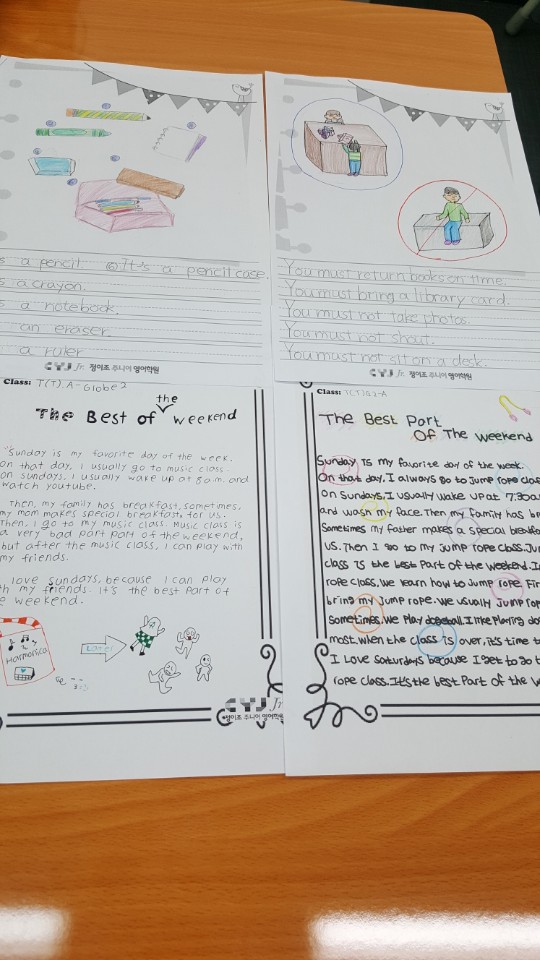 s a pencil ⑥It's a pencil case.
s a crayon.
s a notebook.
an eraser.
a ruler
CYJ Jr. 정이조 주니어 영어학원
You must return books on time.
You must bring a library card.
You must not take photos.
You must not shout.
You must not sit on a desk.
CYJ Jr. 정이조 주니어 영어학원
Class: T(T).A-Globe2
the
The Best of weekend
Sunday is my favorite day of the week.
on that day, I usually go to music class.
on sundays, I usually wake up at 8 a.m. and
watch youtube.
Then, my family has breakfast, sometimes,
my mom makes special breakfast, for us.
Then, I go to my music class. Music class is
a very bad part part of the weekend,
but after the music class, I can play with
my friends.
love sundays, because I can play
th my friends. it's the best part of
e weekend.
Harmonica
Later
CYJ Jr.
정이조 주니어 영어학원
Class: T(T)G2-A
The Best Part
Of The weekend
Sunday is my favorite day of the week.
On that day, I always go to Jump rope clas
On Sundays, I usually wake up at 7:30a.
and wash my face. Then my family has br
Sometimes my father makes a special breakfa
us. Then I go to my jump rope class. Jum
class is the best part of the weekend. In
rope class, we rearn how to jump rope. Fir
bring my jump rope. we usually jump rop
Sometimes, we play dogeball. I like playing do
most. when the class is over, it's time t
I Love Saturdays because I get to go t
rope class. It's the best part of the w